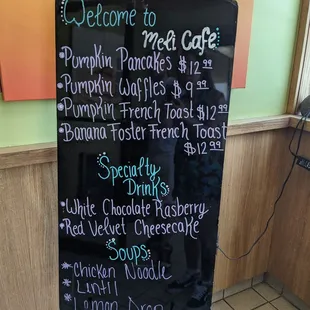 Welcome to
Meli Cafe
*Pumpkin Pancakes $12.99
*Pumpkin Waffles $9.99
*Pumpkin French Toast $12.99
*Banana Foster French Toast
$12.99
Specialty
Drinks
*White Chocolate Rasberry
*Red Velvet Cheesecake
Soups
*Chicken Noodle
*Lentil
*Lemon Orzo